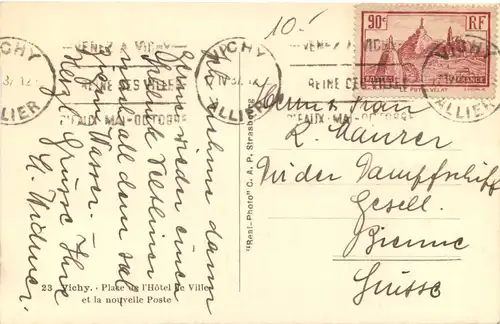 10.-
90c RF
LE PUY-EN-VELAY
VICHY
ALLIER
VENEZ A VICHY
REINE DES VILLES
D'EAUX MAI-OCTOBRE
VICHY
ALLIER
VENEZ A VICHY
REINE DES VILLES
D'EAUX MAI-OCTOBRE
VICHY
ALLIER
Wir nehmen dann
gerne wieder einen
Veltliner
nach all dem
Wasser. —
Herzl. Grüsse Ihre
E. Widmer.
"Real-Photo" C. A. P. Strasbourg
Herrn & Frau
R. Maurer
Dampfschiff
Gesell.
Bienne
Suisse
23 Vichy. - Place de l'Hôtel de Ville
et la nouvelle Poste